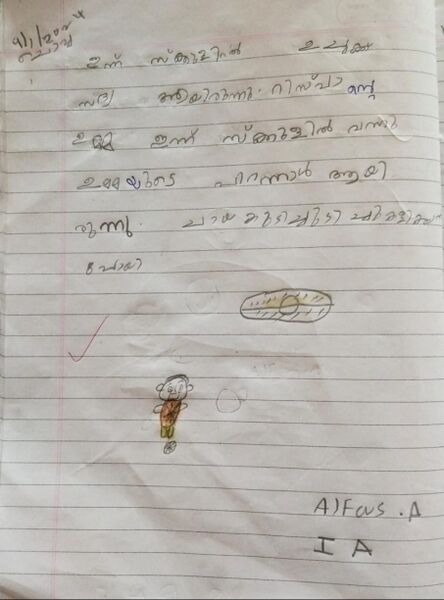 9/1/2024
ചൊവ്വ
ഇന്ന് സ്ക്കൂളിൽ ഉച്ചക്ക്
സദ്യ ആയിരുന്നു. റിസ്‌വാ ന്റെ
ഉമ്മ ഇന്ന് സ്ക്കൂളിൽ വന്നു
ഉമ്മയുടെ പിറന്നാൾ ആയി
രുന്നു. ചായ കുടിച്ച്
പോയി
Alfas . A
I A